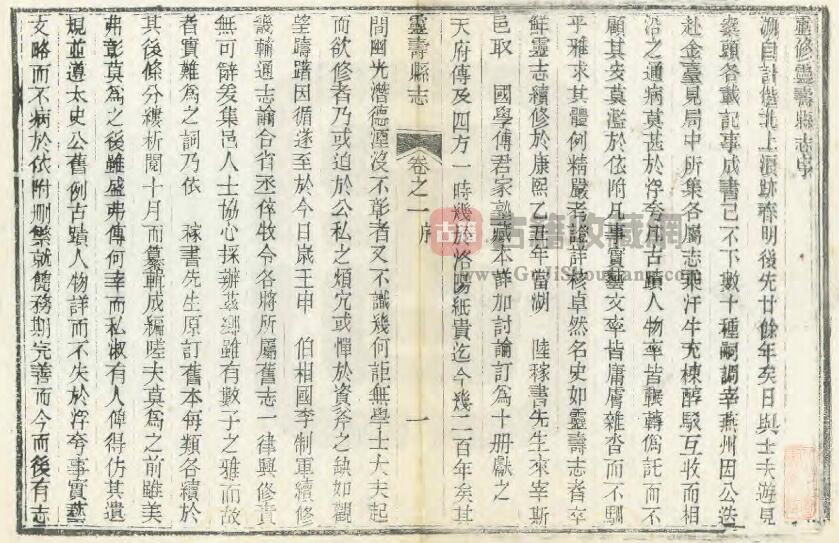 重修靈壽縣志序
溯自計偕北上浪跡 明後先廿餘年矣日與士夫遊見
案頭各載記事成書已不下數十種嗣調宰燕州因公迭
赴金臺見局中所集各屬志乘汗牛充棟醇駁互收而相
沿之通病莫甚於浮夸凡古蹟人物率皆輾轉僞託而不
顧其安莫濫於依附凡事實藝文率皆庸膚雜沓而不馴
乎雅求其體例精嚴考證詳核卓然名史如靈壽志者卒
鮮靈志續修於康熙乙丑年當湖 陸稼書先生來宰斯
邑取 國學傅君家塾藏本詳加討論訂爲十冊獻之
天府傳及四方一時幾於洛陽紙貴迄今幾二百年矣其
靈壽縣志
卷之一 序
一
間幽光潛德湮沒不彰者又不識幾何詎無學士大夫起
而欲修者乃或迫於公私之煩宂或憚於資斧之缺如觀
望躊躇因循遂至於今日歲壬申 伯相國李制軍續修
畿輔通志諭合省丞倅牧令各將所屬舊志一律興修責
無可辭爰集邑人士協心採辦蕞鄉雖有數子之雅而故
者實難爲之詞乃依 稼書先生原訂舊本每類各續於
其後條分縷析閱十月而纂輯成編陸夫莫爲之前雖美
弗彰莫爲之後雖盛弗傳何幸而私淑有人俾得仿其遺
規並遵太史公舊例古蹟人物詳而不失於浮夸事實藝
文略而不病於依附刪繁就簡務期完善而今而後有志
古籍 古籍收藏网
www.GuJiShouCang.com